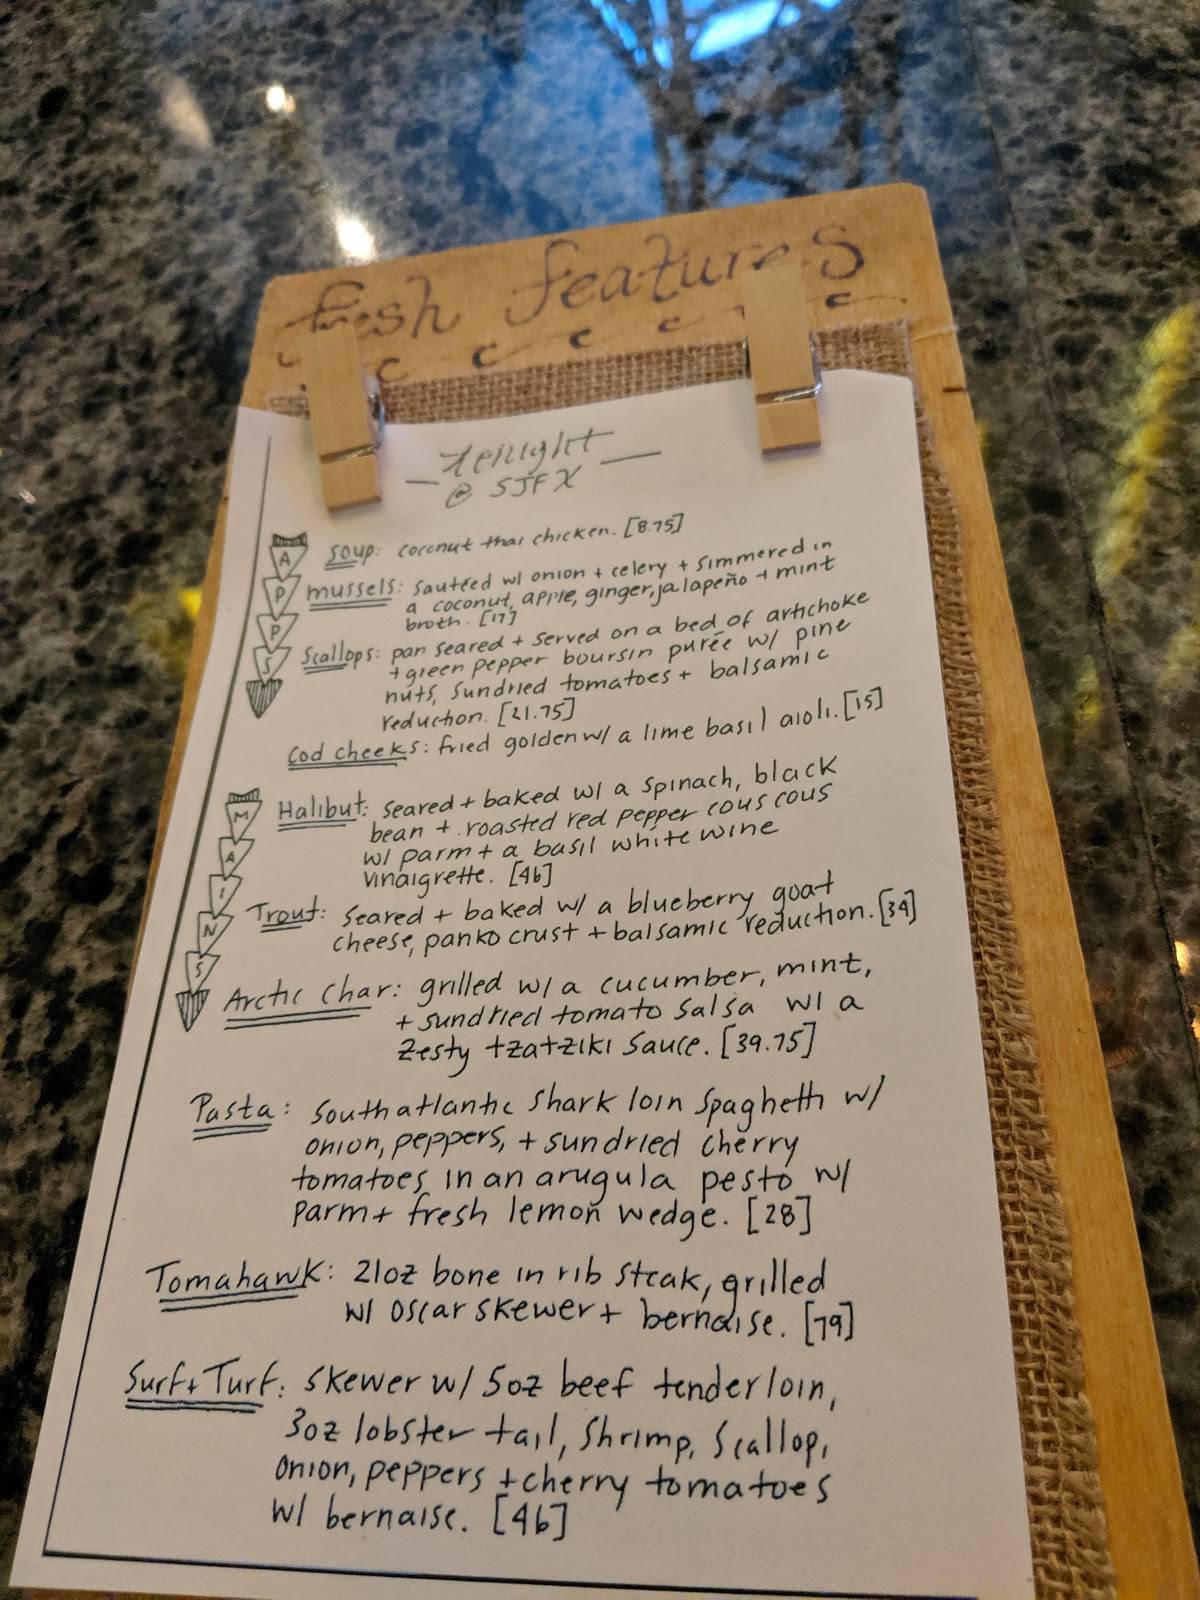 fresh features
@ SJFX
APPS
Soup: coconut thai chicken. [8.75]
mussels: sautéed w/ onion + celery + simmered in
a coconut, apple, ginger, jalapeño + mint
broth. [17]
Scallops: pan seared + served on a bed of artichoke
+ green pepper boursin purée w/ pine
nuts, sundried tomatoes + balsamic
reduction. [21.75]
Cod cheeks: fried golden w/ a lime basil aioli. [15]
MAINS
Halibut: seared + baked w/ a spinach, black
bean + roasted red pepper cous cous
w/ parm + a basil white wine
vinaigrette. [46]
Trout: seared + baked w/ a blueberry goat
cheese, panko crust + balsamic reduction. [34]
Arctic Char: grilled w/ a cucumber, mint,
+ sundried tomato salsa w/ a
zesty tzatziki sauce. [39.75]
Pasta: South atlantic shark loin spaghetti w/
onion, peppers, + sundried cherry
tomatoes in an arugula pesto w/
parm + fresh lemon wedge. [28]
Tomahawk: 21oz bone in rib steak, grilled
w/ oscar skewer + bernaise. [79]
Surf + Turf: skewer w/ 5oz beef tenderloin,
3oz lobster tail, shrimp, scallop,
onion, peppers + cherry tomatoes
w/ bernaise. [46]